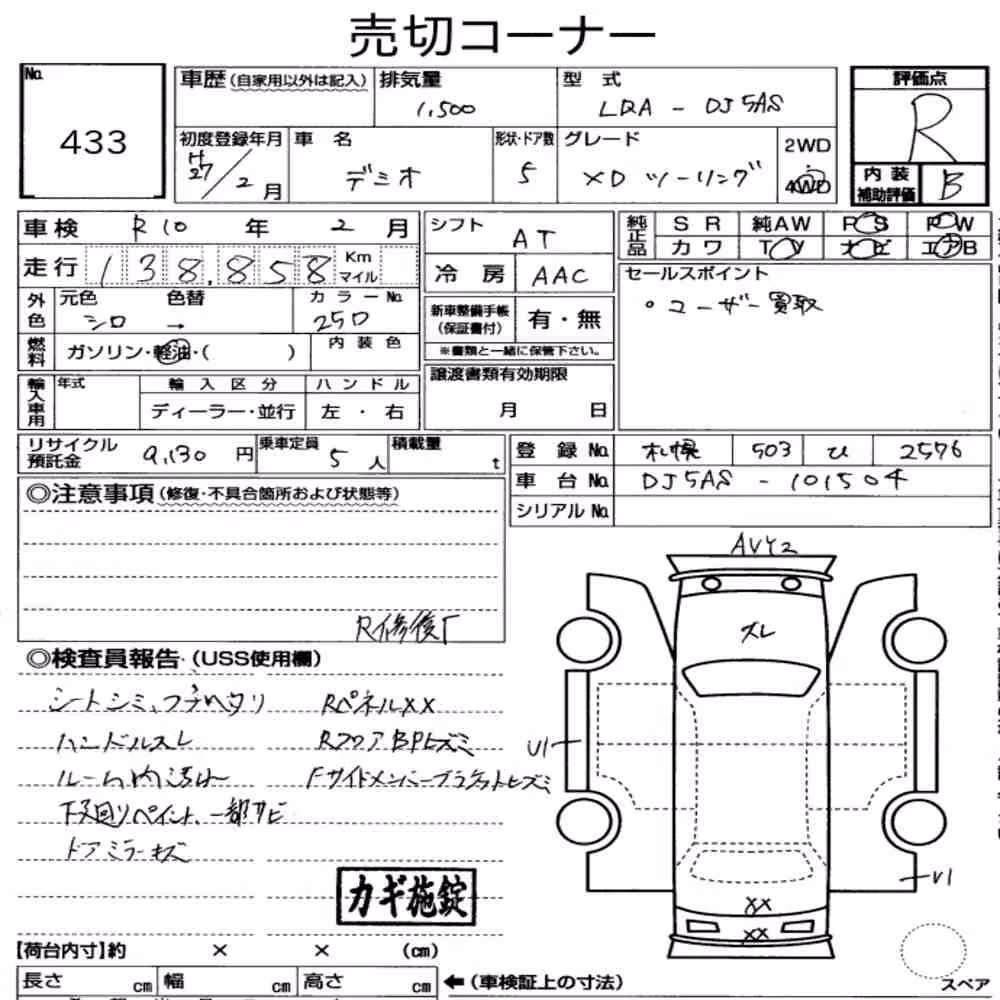 売切コーナー
No. 433
車歴(自家用以外は記入) 排気量 1,500 型式 LDA - DJ5AS 評価点 R
初度登録年月 H27/2月 車名 デミオ 形状・ドア数 5 グレード XD ツーリング 2WD 4WD
内装補助評価 B
車検 R10年 2月 シフト AT 純正品 SR 純AW PS PW
カワ TV ナビ エアB
走行 138,858 Km マイル 冷房 AAC セールスポイント
・ユーザー買取
外色 元色 シロ 色替 → カラーNo. 25D
新車整備手帳(保証書付) 有・無
※書類と一緒に保管下さい。
燃料 ガソリン・軽油・( ) 内装色
輸入車用 年式 輸入区分 ハンドル
ディーラー・並行 左・右
譲渡書類有効期限
月 日
リサイクル預託金 9,130円 乗車定員 5人 積載量 t
登録No. 札幌 503 ひ 2576
車台No. DJ5AS - 101504
シリアルNo.
◎注意事項(修復・不具合箇所および状態等)
R修復歴
◎検査員報告(USS使用欄)
シートシミ、フチヘタリ RパネルXX
ハンドルスレ RフロアBPヒズミ
ルーム内汚れ Fサイドメンバーブラケットヒズミ
下廻りペイント、一部サビ
ドアミラーキズ
カギ施錠
AVY2
スレ
U1
V1
XX
XX
【荷台内寸】約 × × (cm)
長さ cm 幅 cm 高さ cm ←(車検証上の寸法)
スペア